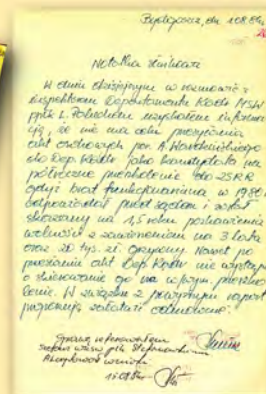 Bydgoszcz, dn. 1.08.89r
Notatka służbowa
W dniu dzisiejszym w rozmowie z
inspektorem Departamentu Kadr MSW
ppłk L. uzyskałem informa
cję, że nie ma celu przesyłania
akt osobowych por. A.
do Dep. Kadr jako kandydata na
półroczne przeszkolenie do ZSRR
gdyż brat funkcjonariusza w 1980r.
odpowiadał przed sądem i został
skazany na 1,5 roku pozbawienia
wolności z zawieszeniem na 3 lata
oraz 20 tys. zł. grzywny. Nawet po
przesłaniu akt Dep. Kadr nie wystąpi
o skierowanie go na w/wym. przeszko
lenie. W związku z powyższym raport
załatwić odmownie.
Sprawę referowałem
Szefowi WUSW płk
Akceptował wniosek
15.08.89